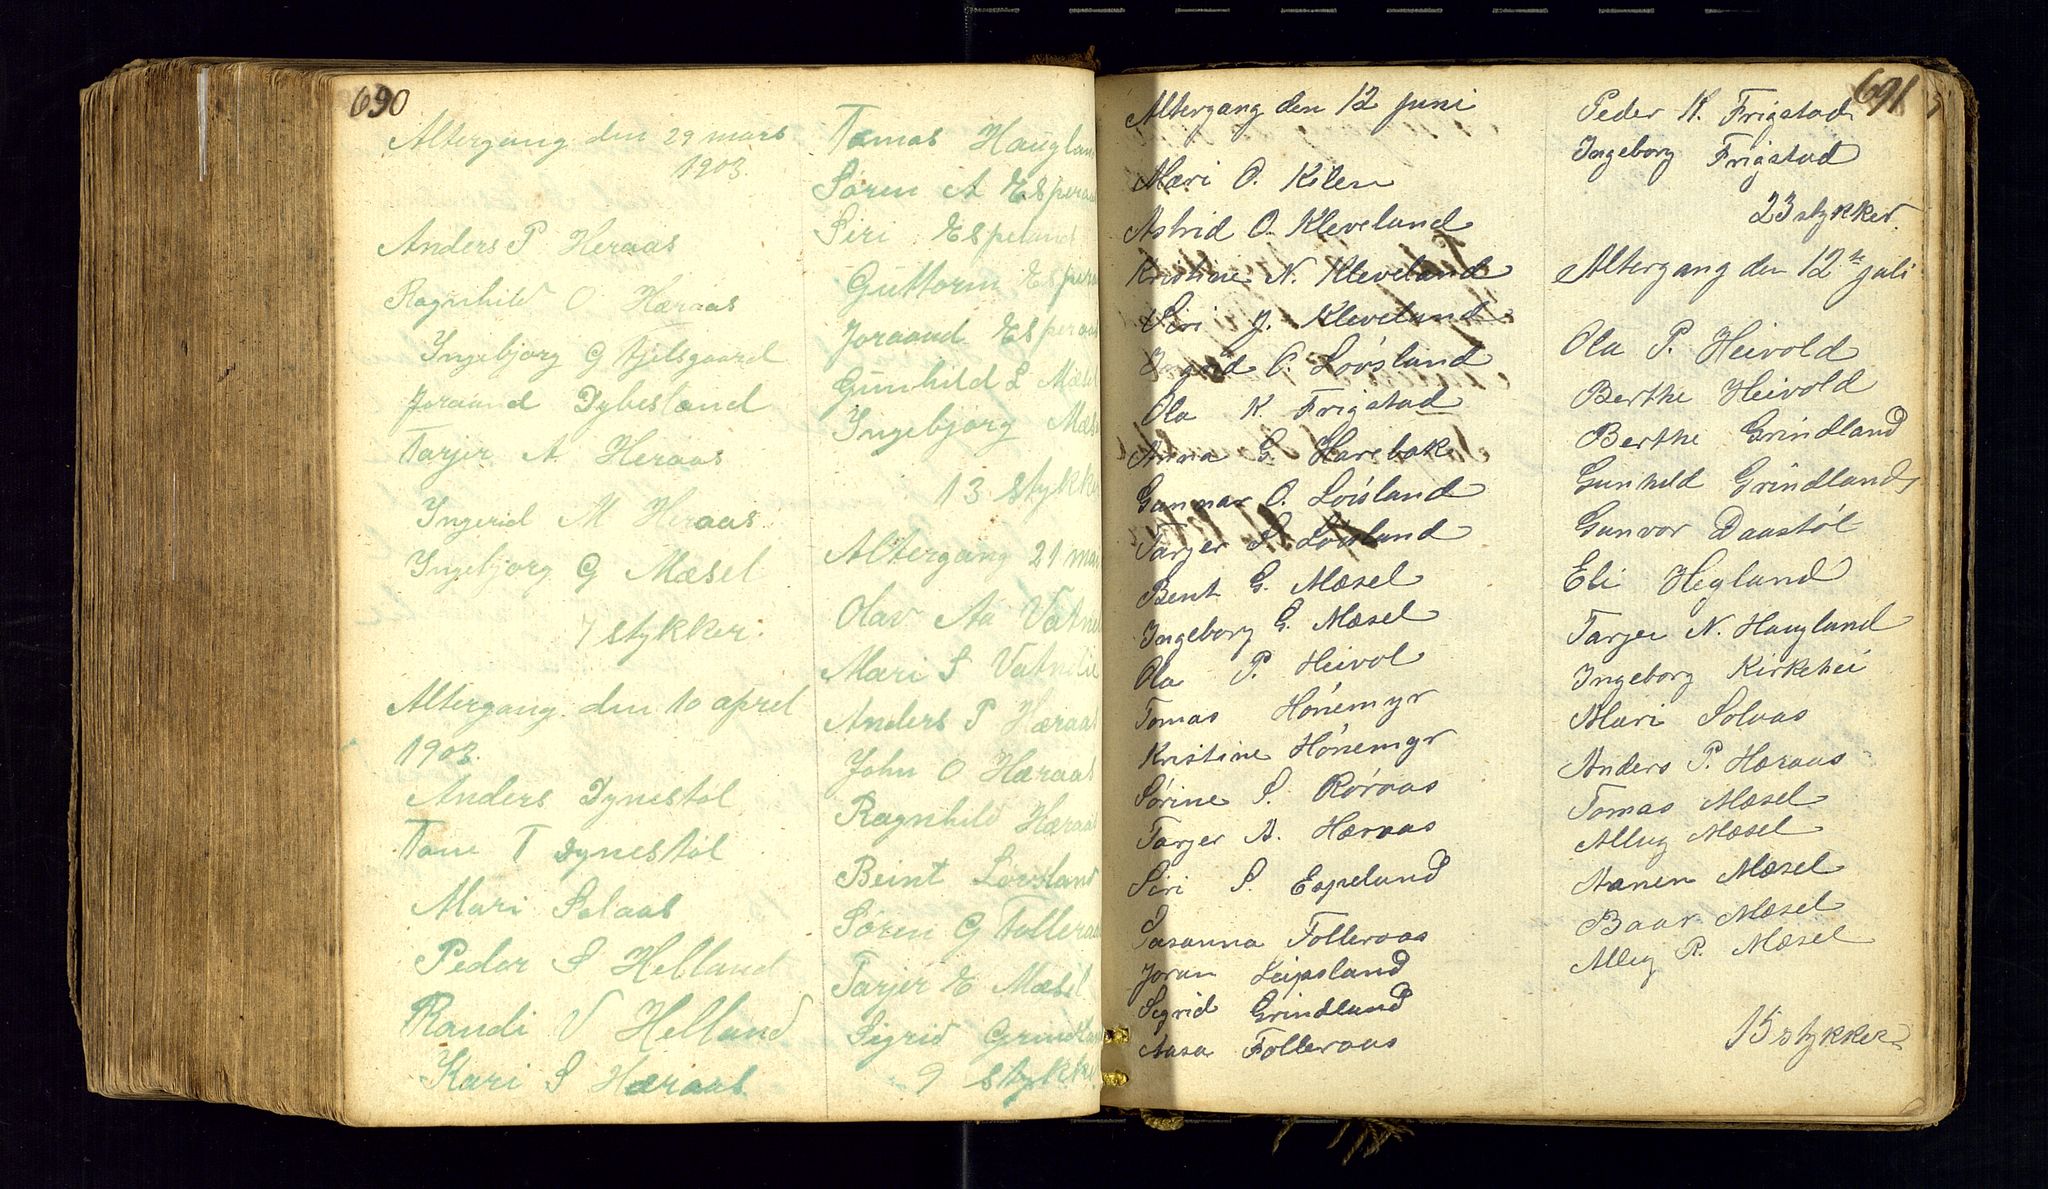 690
Altergang den 29 mars
1903.
Anders P Heraas
Ragnhild O Hæraas
Ingebjorg G
Joraand Dybesland
Tarjer A. Heraas
Ingerid M Heraas
Ingebjorg G Mæsel
7 stykker.
Altergang den 10 april
1903.
Anders Dynestøl
Tone T Dynestøl
Mari Solaas
Peder S Helland
Randi V Helland
Kari S Hæraas
Tomas Haugland
Søren A Esperaas
Siri Espeland
Guttorm
Joraand Esperaas
Gunhild L Mæsel
Ingebjorg Mæsel
13 stykker
Altergang 21 mai
Olav Aa Vatnelie
Mari S Vatnelie
Anders P Hæraas
John O Hæraas
Ragnhild Hæraas
Beint Løvsland
Søren G Tolleraas
Tarjer E Mæsel
Sigrid Grindland
9 stykker
691
Altergang den 12 juni
Mari O. Kilen
Astrid O. Kleveland
Kristine N. Kleveland
Siri J. Kleveland
Ingrid O. Lovsland
Ola K. Frigstad
Anna G Harebak
Gunnar O. Lovsland
Tarjer S Lovsland
Bent G. Mæsel
Ingeborg G. Mæsel
Ola P. Heivol
Tomas Hónemyr
Kristine Hónemyr
Sórine S. Róraas
Tarjer A. Hæraas
Siri S. Espeland
Susanna Folleraas
Joran Leipsland
Sigrid Grindland
Aasa Folleraas
Peder K. Frigstad
Ingeborg Frigstad
23 stykker.
Altergang den 12te juli
Ola P. Heivold
Berthe Heivold
Berthe Grindland
Gunhild Grindland
Gunvor Daastól
Eli Hegland
Tarjer N. Haugland
Ingeborg Kirkehei
Mari Solaas
Anders P. Hæraas
Tomas Mæsel
Alleg Mæsel
Aanen Mæsel
Baar Mæsel
Alleg R. Mæsel
15 stykker